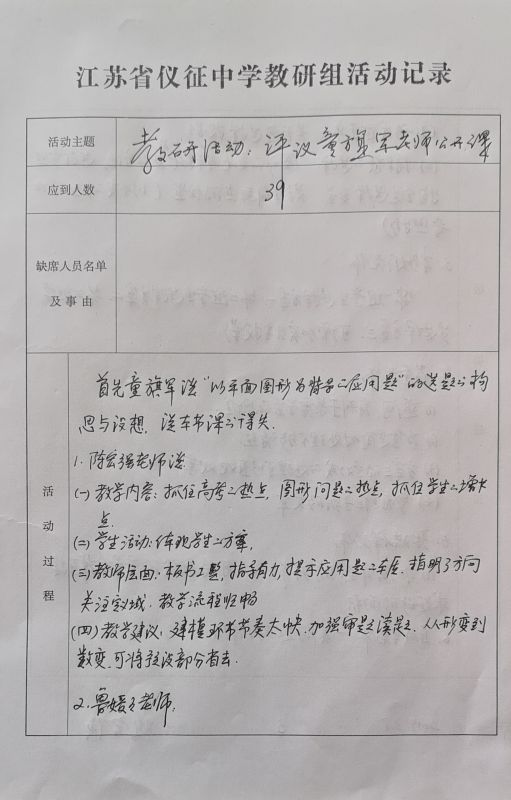 江苏省仪征中学教研组活动记录
活动主题
教研活动：评议童旗军老师公开课
应到人数
39
缺席人员名单
及事由
活动过程
首先童旗军谈“以平面图形为背景的应用题”的选题的构
思与设想，谈本节课的得失.
1.陈宏强老师谈
(一)教学内容：抓住高考的热点，图形问题的热点，抓住学生的增长
点.
(二)学生活动：体现学生的方案，
(三)教师层面：板书工整，指导有力，提示应用题的来源.指明了方向
关注定义域.教学流程顺畅
(四)教学建议：建模环节节奏太快.加强审题读题.从形变到
数变，可将该段部分省去.
2.鲁媛媛老师：